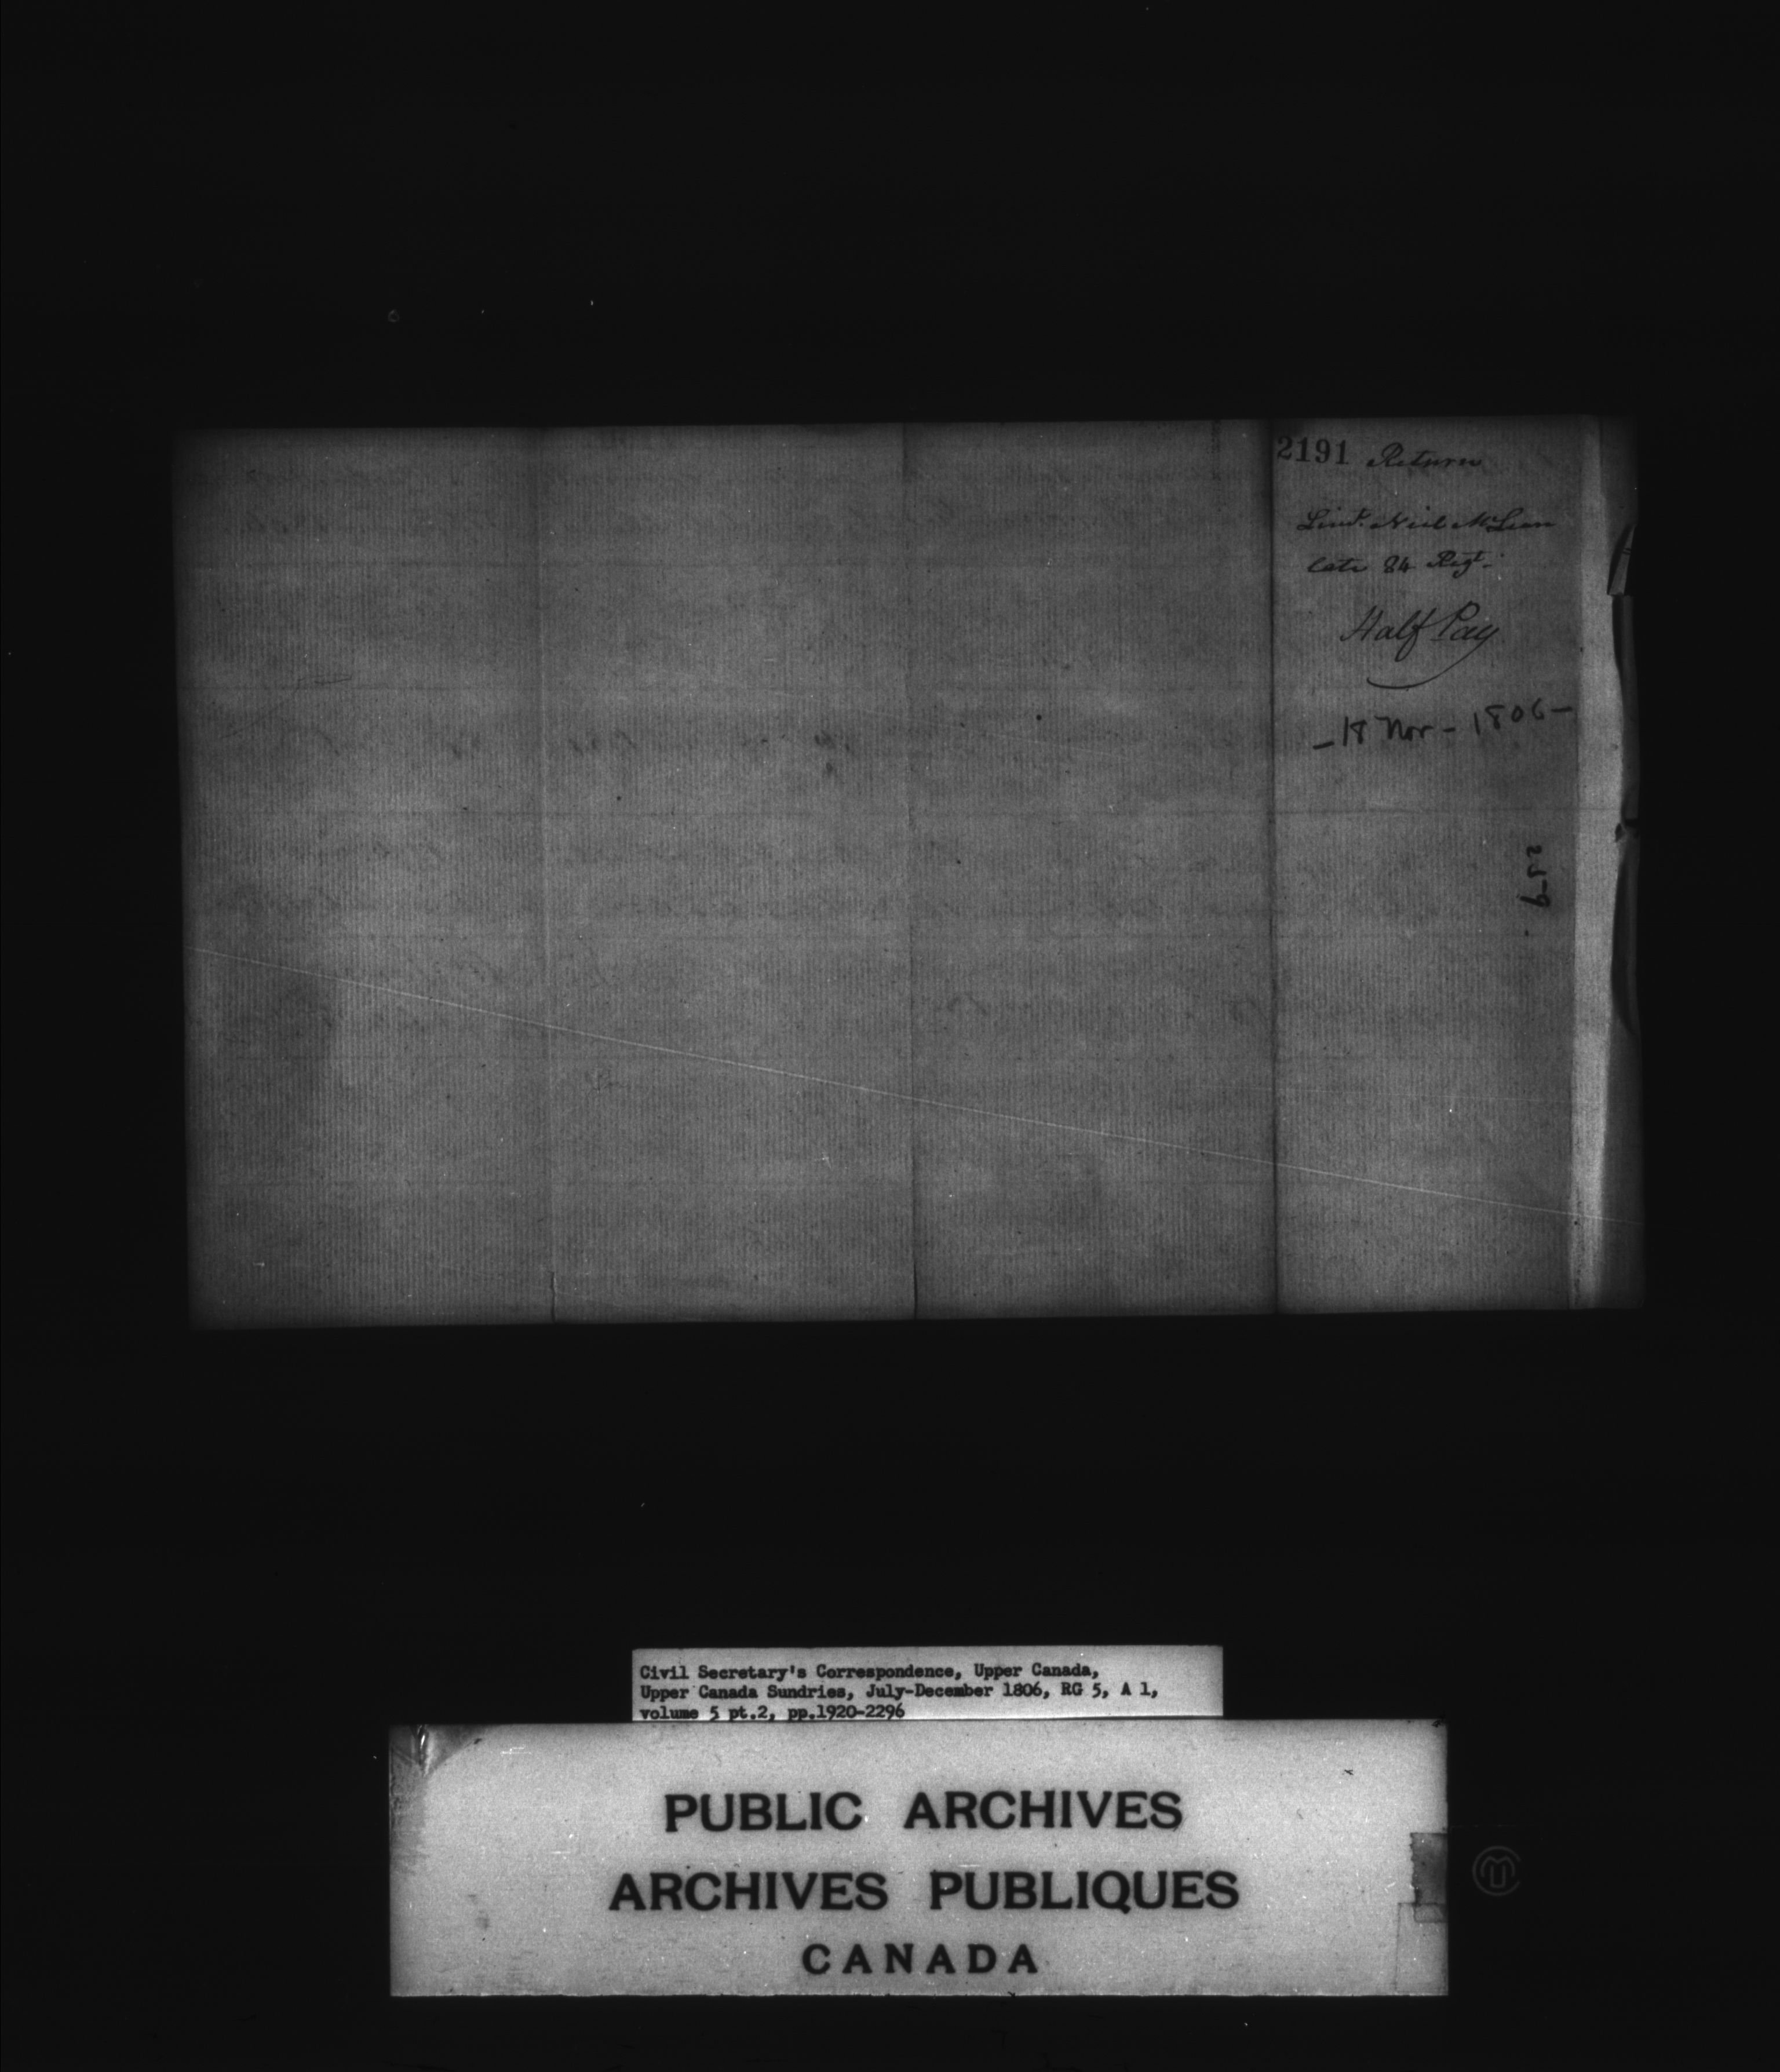 2191 Return
Lieut. Neil McLean
late 84 Regt.
Half Pay
- 18 Nov - 1806 -
259.
Civil Secretary's Correspondence, Upper Canada,
Upper Canada Sundries, July-December 1806, RG 5, A 1,
volume 5 pt.2, pp.1920-2296
PUBLIC ARCHIVES
ARCHIVES PUBLIQUES
CANADA